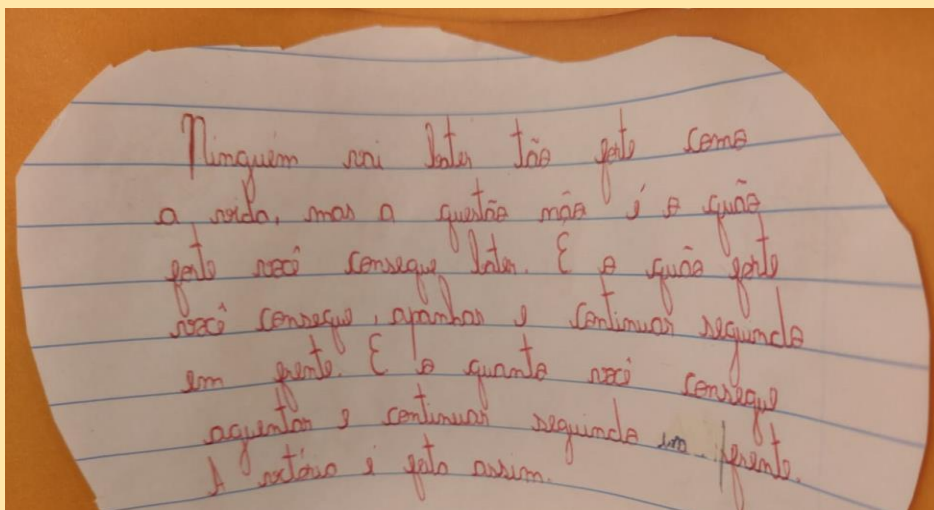 Ninguém vai bater tão forte como
a vida, mas a questão não é o quão
forte você consegue bater. É o quão forte
você consegue, apanhar e continuar seguindo
em frente. É o quanto você consegue
aguentar e continuar seguindo em frente.
A vitória é feita assim.